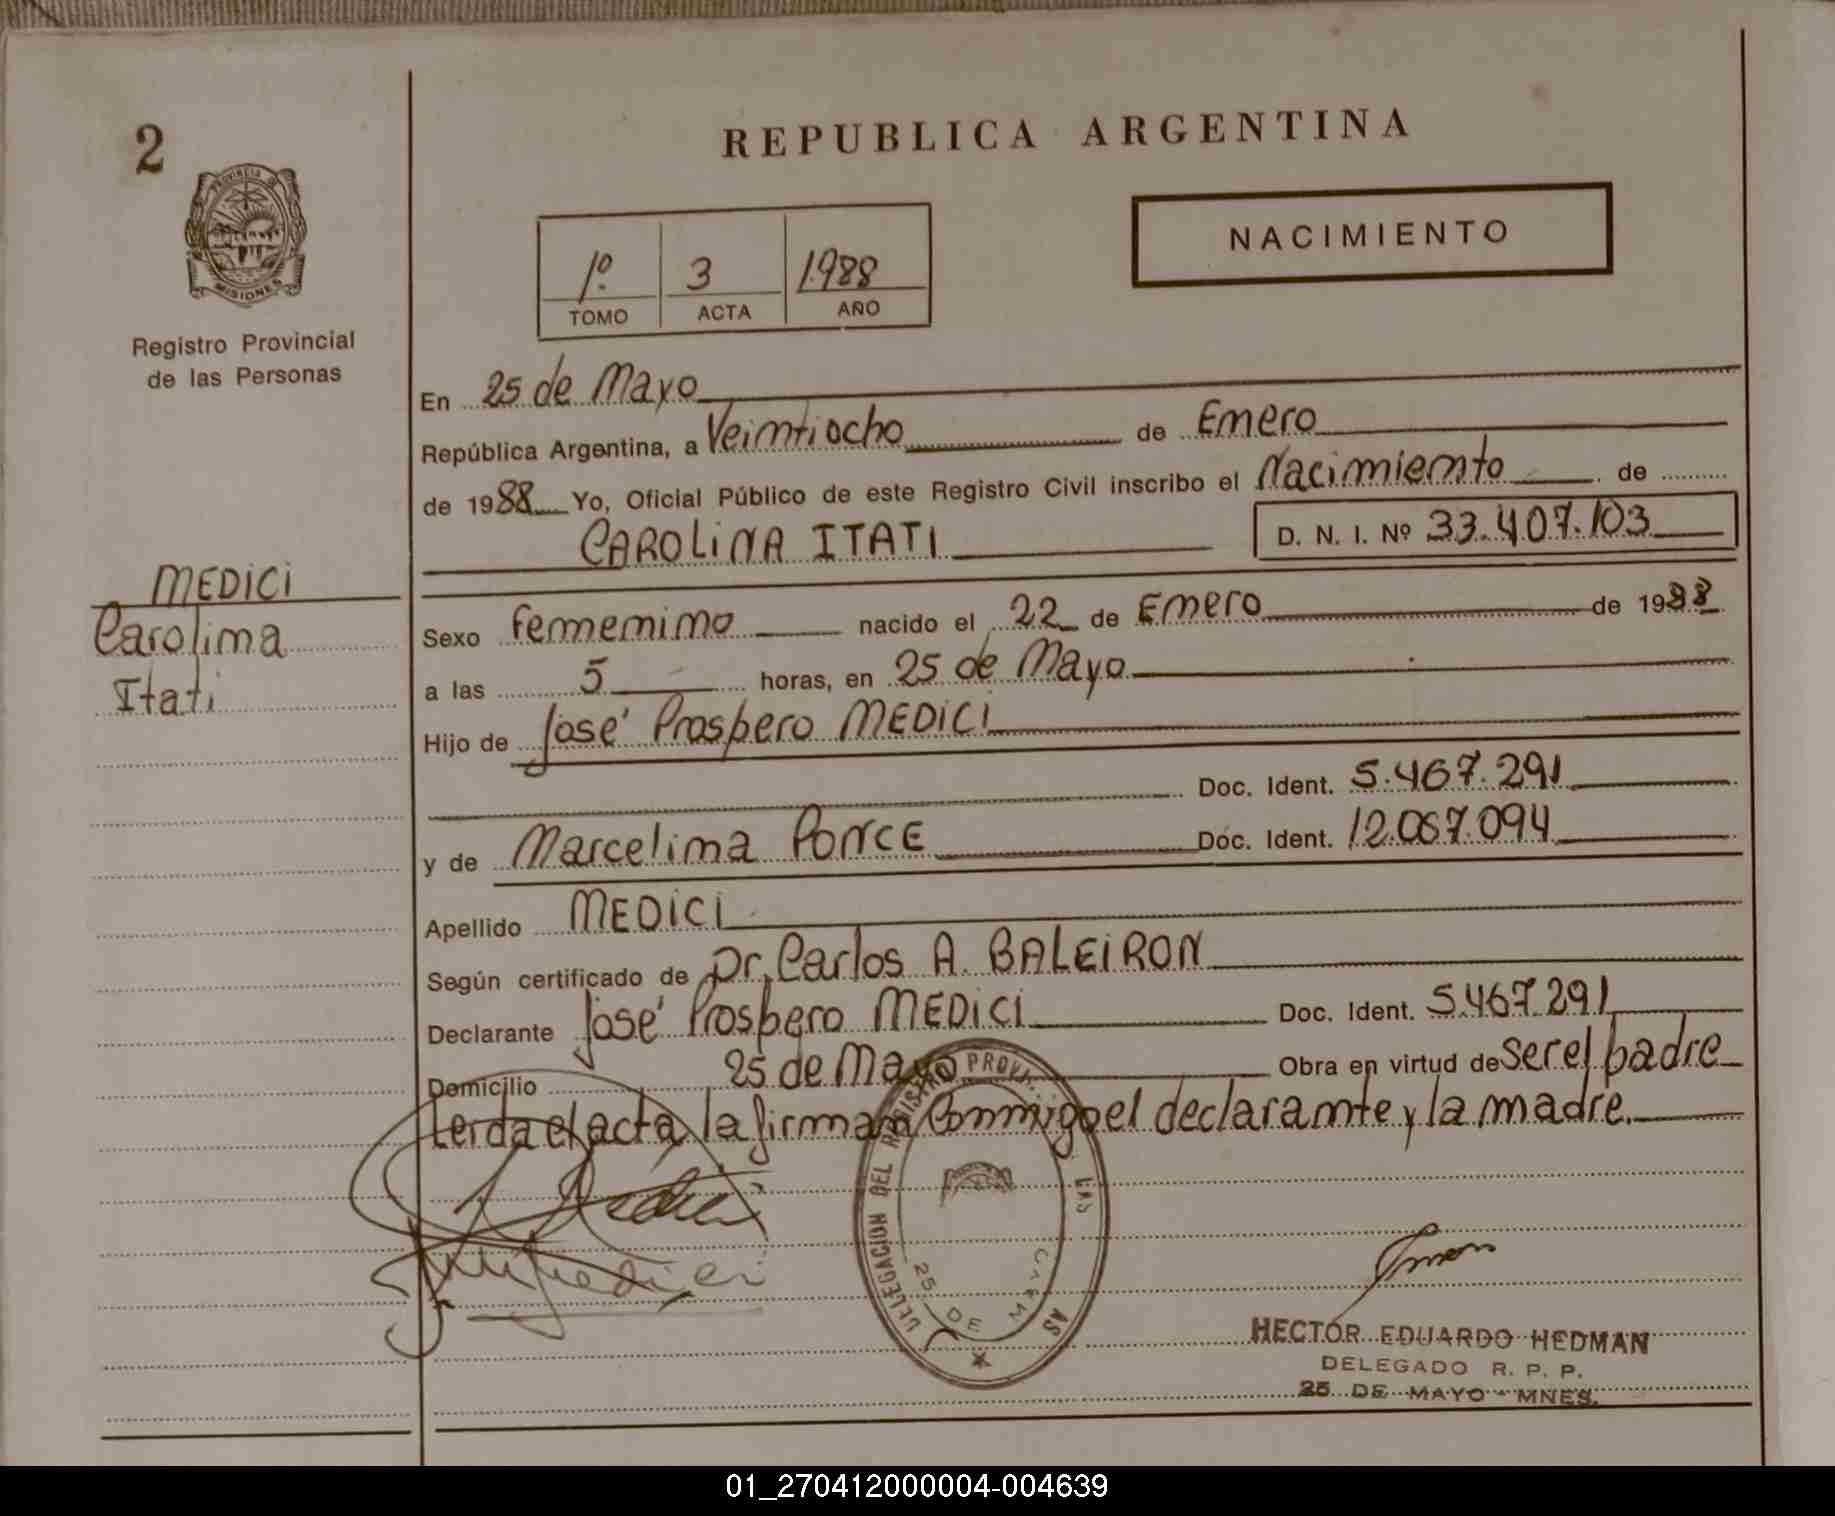 2
REPUBLICA ARGENTINA
PROVINCIA DE
MISIONES
Registro Provincial
de las Personas
1º 3 1988
TOMO ACTA AÑO
NACIMIENTO
MEDICI
Carolina
Itati
En 25 de Mayo
República Argentina, a Veintiocho de Enero
de 1988 Yo, Oficial Público de este Registro Civil inscribo el Nacimiento de
CAROLINA ITATI D. N. I. Nº 33.407.103
Sexo femenino nacido el 22 de Enero de 1988
a las 5 horas, en 25 de Mayo
Hijo de José Prospero MEDICI
Doc. Ident. 5.467.291
y de Marcelina PONCE Doc. Ident. 12.067.094
Apellido MEDICI
Según certificado de Dr. Carlos A. BALEIRON
Declarante José Prospero MEDICI Doc. Ident. 5.467.291
Domicilio 25 de Mayo Obra en virtud de ser el padre
Leida el acta, la firman Conmigo el declarante y la madre.
DELEGACION DEL REGISTRO PROV. LAS
25 DE MAYO
HECTOR EDUARDO HEDMAN
DELEGADO R. P. P.
25 DE MAYO - MNES.
01_270412000004-004639